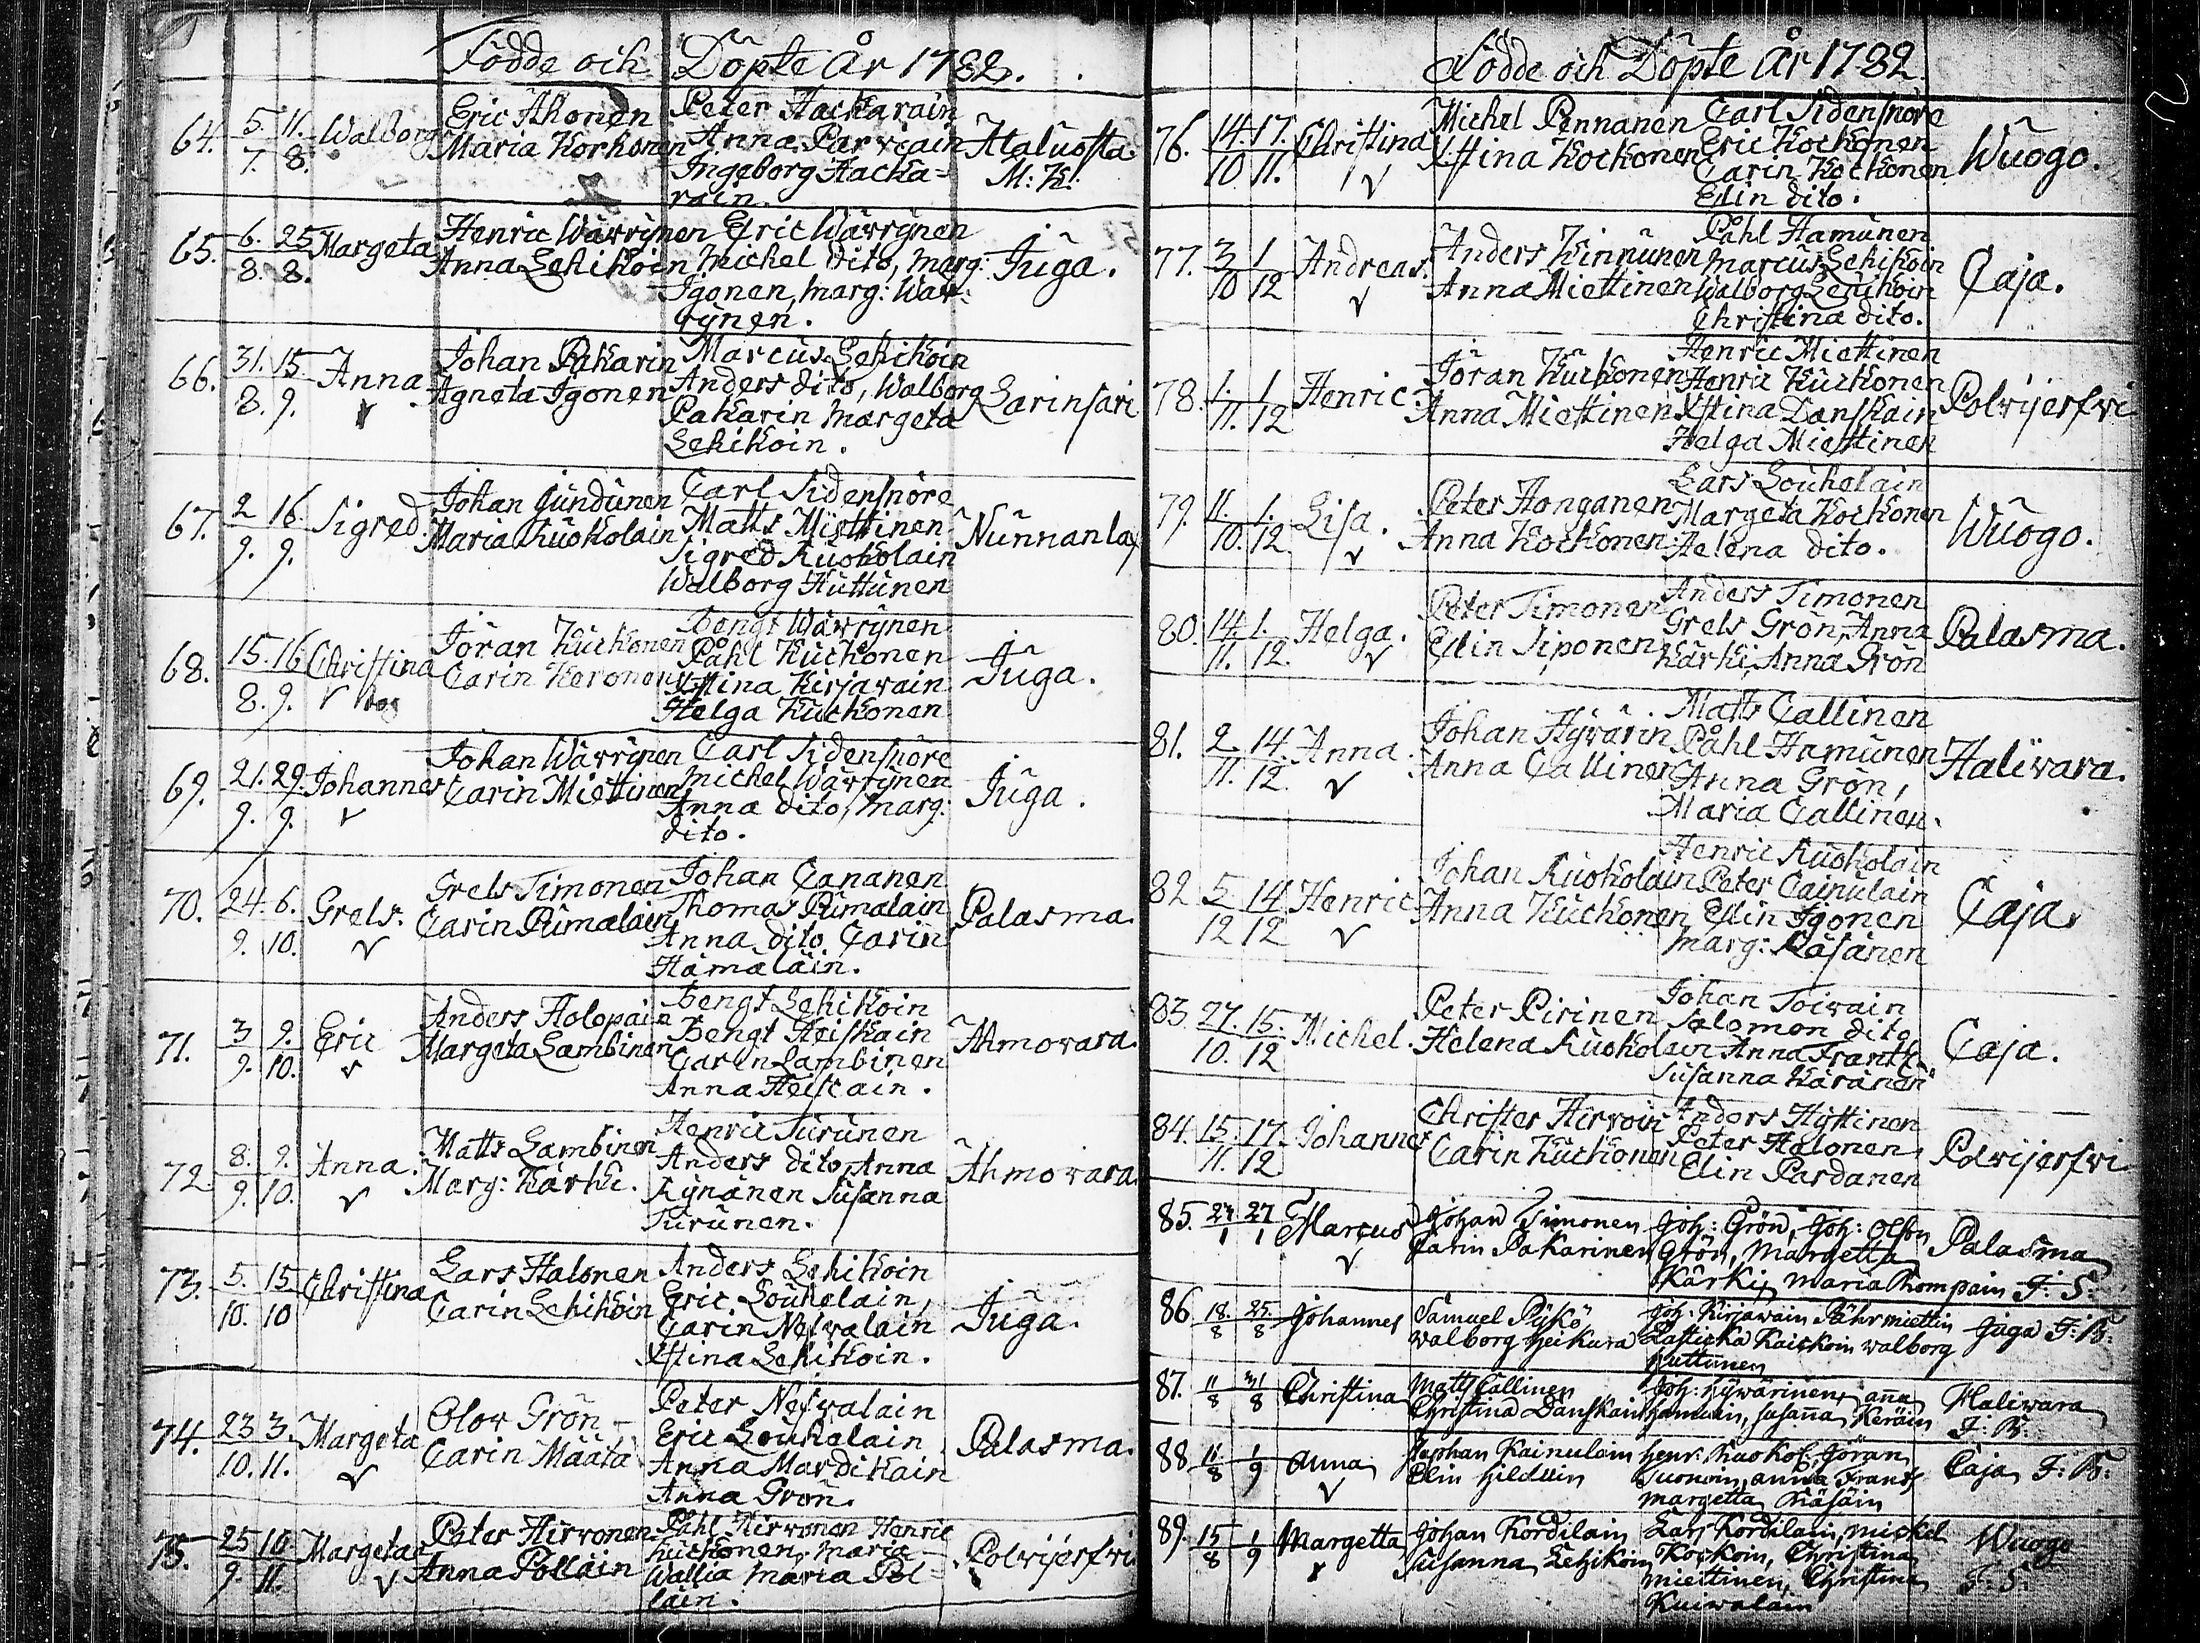 Födde och Döpte År 1782.
64. 5. 11. Walborg Eric Ahonen Peter Hackarain
7. 8. Maria Korhonen Anna Parviain Haluosta.
Ingeborg Hacka= M: K:
rain.
65. 6. 25 Margeta Henric Wärrÿnen Eric Wärrÿnen
8. 8. Anna Lehikoin Michel dito, Marg: Juga.
Igonen, Marg: Wär-
rÿnen.
66. 31. 15 Anna Johan Pakarin Marcus Lehikoin
8. 9. Agneta Igonen Anders dito, Walborg Larinsari
Pakarin Margeta
Lehikoin.
67. 2 16 Sigred Johan Jundunen Carl Sidensnöre
9. 9. Maria Kuokolain Matts Miettinen Nunnanlax
Sigred Kuokolain
Walborg Huttunen
68. 15. 16 Christina Jöran Kuckonen Bengt Wärrÿnen
8. 9. Carin Keronen Påhl Kuckonen Juga.
Xstina Kirjavain
Helga Kuckonen
69. 21. 29. Johannes Johan Wärrÿnen Carl Sidensnöre
9. 9. Carin Miettinen Michel Wärrÿnen Juga.
Anna dito, Marg:
dito.
70. 24. 6. Grels. Grels Timonen Johan Cananen
9. 10. Carin Pümalain Thomas Pümalain Palasma.
Anna dito, Carin
Hämäläin.
71. 3 9. Eric Anders Holopain Bengt Lehikoin
9. 10. Margeta Lambinen Bengt Heiskain Ahmovara.
Carin Lambinen
Anna Heiscain.
72. 8. 9. Anna. Matts Lambinen Henric Turunen
9. 10. Marg: Kärki. Anders dito, Anna Ahmovara.
Rÿnänen Susanna
Turunen.
73. 5. 15 Christina Lars Halonen Anders Lehikoin
10. 10 Carin Lehikoin Eric Louhelain, Juga.
Carin Nevalain
Xstina Lehikoin.
74. 23 3. Margeta Olov Grön Peter Nevalain
10. 11. Carin Määtä Eric Louhelain Palasma.
Anna Mardikain
Anna Grön.
75. 25 10 Margeta Peter Hirvonen Påhl Hirvonen Henric
9. 11. Anna Polläin Kuckonen, Maria Polvijerfvi
Wallia Maria Pol=
läin.
Födde och Döpte År 1782.
76. 14. 17. Christina Michel Pennanen Carl Sidensnöre
10 11. Xstina Kockonen Eric Kockonen Wuogo.
Carin Kockonen
Elin dito.
77. 3 1 Andreas. Anders Kinnunen Påhl Hamunen
10 12 Anna Miettinen Marcus Lehikoin Caja.
Walborg Lehikoin
Christina dito.
78. 1. 1 Henric. Jöran Kuckonen Henric Miettinen
11. 12 Anna Miettinen Henric Kuckonen Polvijerfvi
Xstina Danskain
Helga Miettinen
79. 11. 1. Lisa. Peter Honganen Lars Louhelain
10. 12 Anna Kockonen Margeta Kockonen Wuogo.
Helena dito.
80. 14. 1. Helga. Peter Timonen Anders Timonen
11. 12. Elin Siponen Grels Grön, Anna Palasma.
Kärki, Anna Grön
81. 2. 14. Anna. Johan Hÿvärin Matts Callinen
11. 12. Anna Callinen Påhl Hamunen Halivara.
Anna Grön,
Maria Callinen.
82 5. 14 Henric Johan Kuokolain Henric Kuokolain
12 12 Anna Kuckonen Peter Cainulain Caja.
Elin Igonen
Marg: Räsänen
83. 27. 15. Michel. Peter Pirinen Johan Toivain
10. 12 Helena Kuokolain Salomon dito Caja.
Anna Frantz.
Susanna Käränen
84. 15. 17. Johannes Christer Hirvoin Anders Hÿttinen
11. 12 Carin Kuckonen Peter Halonen Polvijerfvi
Elin Pardanen
85. 27. 27 Marcus Johan Timonen Joh: Grön, Joh: Olsson
1 1 Carin Pakarinen Grön, Margetta Palasma
Kärki, Maria Rompain F: S:
86. 18. 25. Johannes Samuel Pÿkö Joh: Kirjavain
8 8 Walborg Heikura Kaickoin Walborg Juga F: B:
Huttunen
87. 11 31 Christina Matts Callinen Joh: Hÿwärinen, Anna Haliwara
8 8 Christina Danskain Hamuin, Susanna Keräin F: B:
88. 11 1 Anna Staphan Kainulain Henr: Kuokol, Jöran
8 9 Elin Hilduin Tuonoin, Anna Frants Caja F: B:
Margetta Räsäin
89. 15 1 Margetta Johan Kordilain Lars Kordilain, Mickel Wuogo
8 9 Susanna Lehikoin Kockoin, Christina F: S:
Miettinen, Christina
Kuiwalain